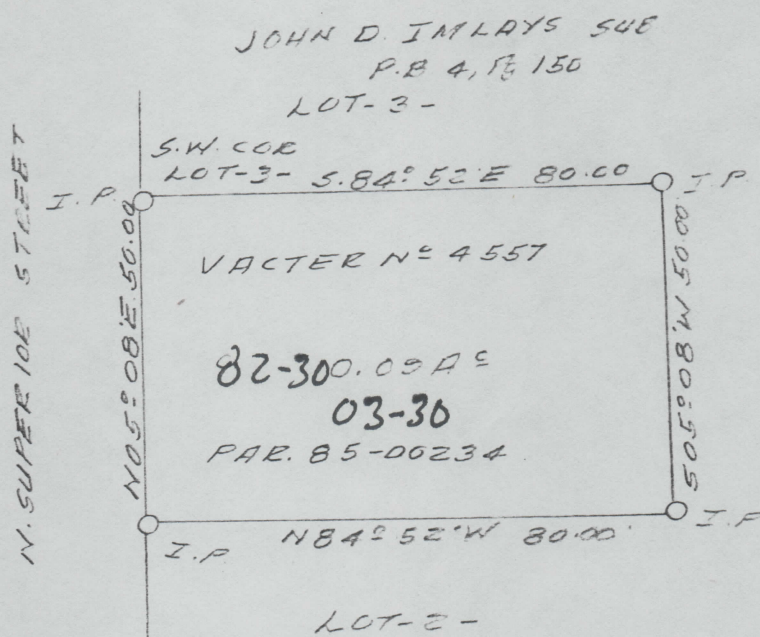 JOHN D. IMLAYS SUB
P.B 4, Pg 150
LOT-3-
S.W. COR
LOT-3-
S.84° 52'E 80.00
I.P.
I.P.
N.SUPERIOR STREET
N05°08'E 50.00
VACTER Nº 4557
S05°08'W 50.00
82-30 0.09 Ac
03-30
PAR. 85-00234
I.P
N84° 52'W 80.00'
I.P
LOT-2-